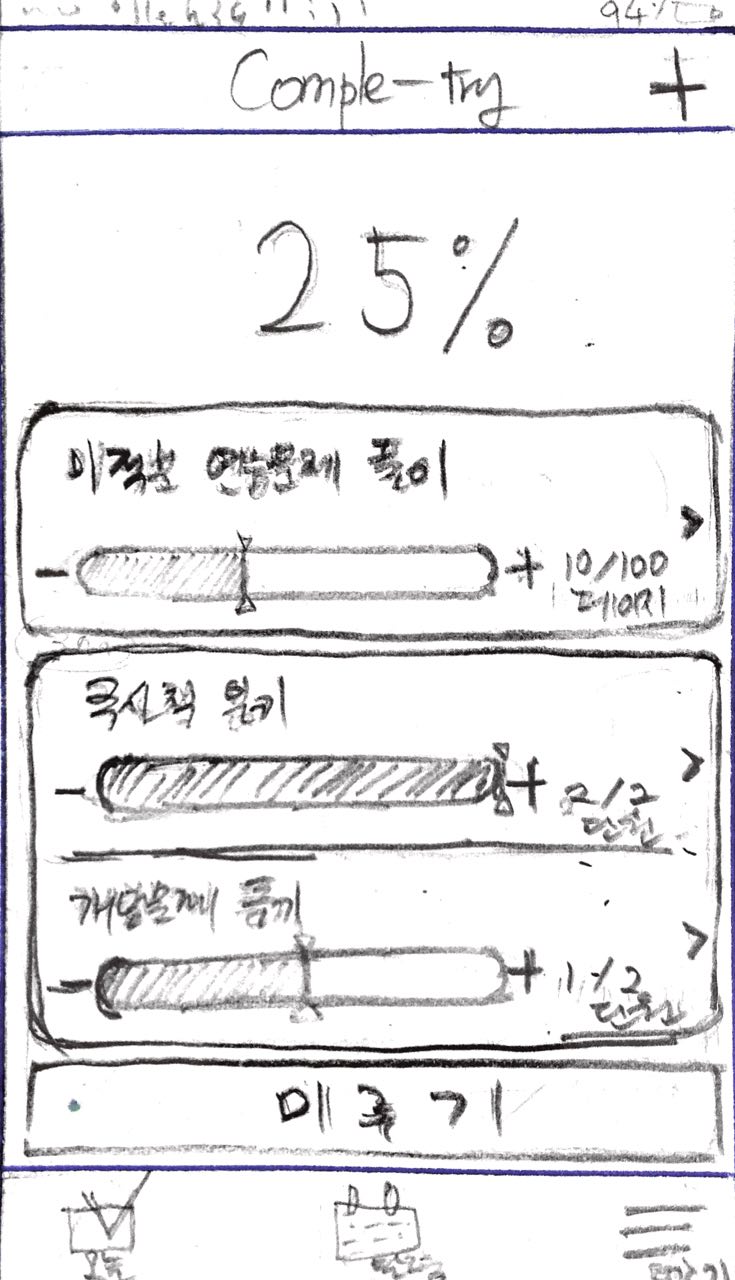 94%
Comple-try +
25%
미적분 연습문제 풀이
>
- + 10/100
페이지
국사책 읽기
>
- + 2/2
단원
개념문제 풀기
>
- + 1/2
단원
미루기
오늘